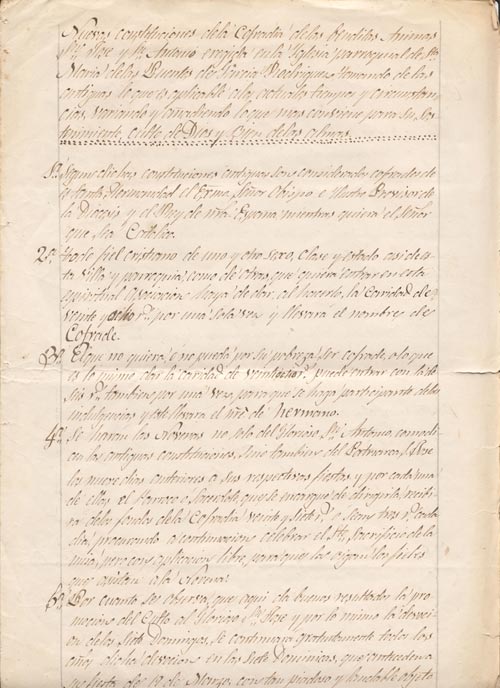 Nuevas constituciones de la Cofradia de las Benditas Animas
Sn. Jose y Sn. Antonio erigida en la Iglesia parroquial de Sta.
Maria de las Puentes de Garcia Rodriguez tomando de las
antiguas lo que es aplicable a los actuales tiempos y circunstan
cias, variando y añadiendo lo que mas conviene para su sos
tenimiento, culto de Dios y bien de las almas.
1ª. Segun dichas constituciones antiguas son considerados cofrades de
esta Santa Hermandad el Exmo. Señor Obispo e Ilustre Provisor de
la Diocesis y el Rey de nra. España mientras quiera el Señor
que sea Catolico.
2ª. Todo fiel cristiano de uno y otro sexo, clase y estado asi de es
ta villa y parroquia, como de otras, que quiera entrar en esta
espiritual asociacion haya de dar, al hacerlo, la Caridad de
veinte y ocho rs. por una sola vez y llevara el nombre de
Cofrade.
3ª. El que no quiera, o no pueda por su pobreza, ser cofrade, o lo que
es lo mismo dar la caridad de veintiocho rs. puede entrar con la de
seis rs. tambien por una vez, para que se haga participante de las
indulgencias y este llevara el nre. de hermano.
4ª. Se haran las Novenas no solo del Glorioso Sn. Antonio, como di
cen las antiguas constituciones, sino tambien del Patriarca Sn. Jose
los nueve dias anteriores a sus respectivas fiestas y por cada una
de ellas el Parroco o Sacerdote que se encargue de dirigirla, recibi
ra de los fondos de la Cofradia veinte y siete rs. o sean tres rs. cada
dia, procurando a continuacion celebrar el Sto. Sacrificio de la
misa, pero con aplicacion libre, para que la oigan los fieles
que asistan a la Novena.
5ª. Por cuanto se observa, que aqui da buenos resultados la pro
mocion del Culto al Glorioso Sn. Jose y por lo mismo la devocion
de los Siete Domingos, se continuara gratuitamente todos los
años dicha devocion en los Siete Domingos, que anteceden a
su fiesta de 19 de Marzo, con tan piadoso y laudable objeto